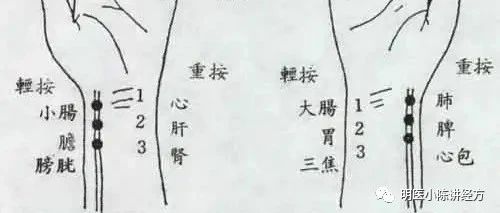 輕按
重按
小腸
1
心
膽
2
肝
膀胱
3
腎
輕按
重按
大腸
1
肺
胃
2
脾
三焦
3
心包
明医小陈讲经方